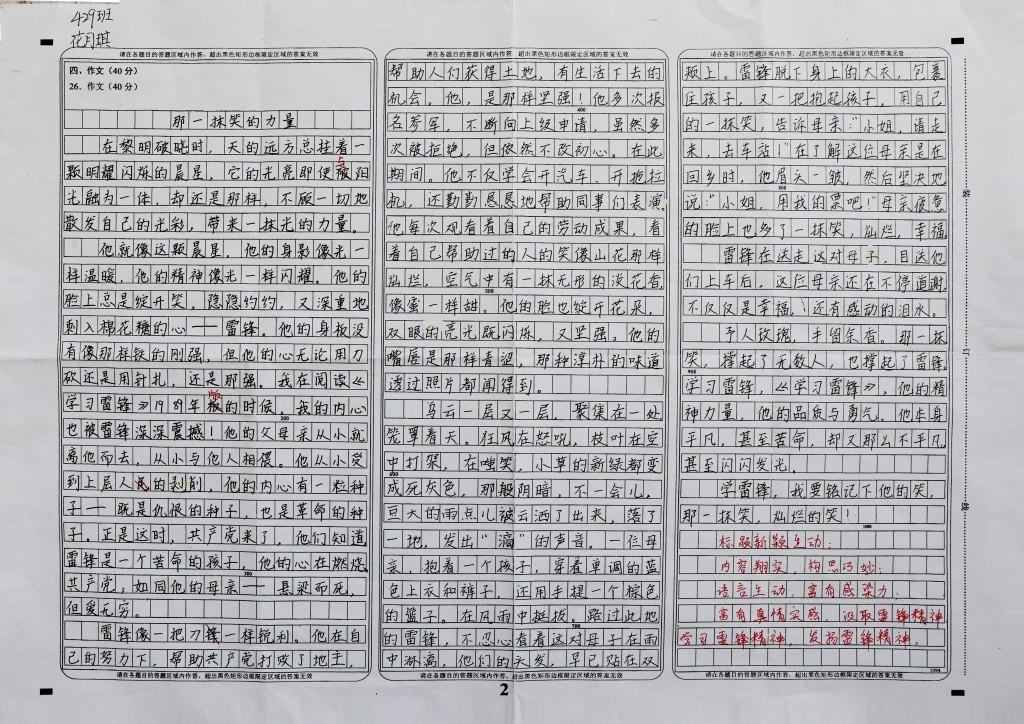 429班
花月琪
请在各题目的答题区域内作答，超出黑色矩形边框限定区域的答案无效
四、作文(40分)
26．作文(40分)
那一抹笑的力量
在黎明破晓时，天的远方总挂着一
颗明耀闪烁的晨星，它的光亮即使与阳
光融为一体，却还是那样，不顾一切地
散发自己的光彩，带来一抹光的力量。
他就像这颗晨星，他的身影像光一
样温暖，他的精神像光一样闪耀。他的
脸上总是绽开笑，隐隐约约，又深重地
刺入棉花糖的心——雷锋。他的身板没
有像那样铁的刚强，但他的心无论用刀
砍还是用针扎，还是那强。我在阅读《
学习雷锋》1989年版的时候，我的内心
200
也被雷锋深深震撼！他的父母亲从小就
离他而去，从小与他人相偎。他从小受
到上层人民的剥削，他的内心有一粒种
子——既是仇恨的种子，也是革命的种
子。正是这时，共产党来了，他们知道
雷锋是一个苦命的孩子，他的心在燃烧
共产党，如同他的母亲——悬梁而死，
300
但爱无穷。
雷锋像一把刀锋一样锐利。他在自
己的努力下，帮助共产党打败了地主，
请在各题目的答题区域内作答，超出黑色矩形边框限定区域的答案无效
请在各题目的答题区域内作答，超出黑色矩形边框限定区域的答案无效
帮助人们获得土地，有生活下去的
机会。他，是那样坚强！他多次报
400
名参军，不断向上级申请，虽然多
次被拒绝，但依然不改初心。在此
期间。他不仅学会开汽车、开拖拉
机，还勤勤恳恳地帮助同事们表演
他每次观看着自己的劳动成果，看
着自己帮助过的人的笑像山花那样
灿烂，空气中有一抹无形的淡花香
500
像蜜一样甜。他的脸也绽开花朵，
双眼的亮光既闪烁，又坚强。他的
嘴唇是那样青涩，那种淳朴的味道
透过照片都闻得到。
乌云一层又一层，聚集在一处
笼罩着天。狂风在怒吼，枝叶在空
中打架，在嗤笑，小草的新绿都变
600
成死灰色，那般阴暗，不一会儿，
豆大的雨点儿被云洒了出来，落了
一地，发出“滴”的声音。一位母
亲，抱着一个孩子，穿着单调的蓝
色上衣和裤子，还用手提一个棕色
的篮子。在风雨中挺拔。路过此地
700
的雷锋，不忍心看着这对母子在雨
中淋漓，他们的头发，早已贴在双
请在各题目的答题区域内作答，超出黑色矩形边框限定区域的答案无效
请在各题目的答题区域内作答，超出黑色矩形边框限定区域的答案无效
颊上。雷锋脱下身上的大衣，包裹
住孩子，又一把抱起孩子，用自己
的一抹笑，告诉母亲：“小姐，请走
来，去车站！”在了解这位母亲是在
回乡时，他眉头一皱，然后坚决地
800
说：“小姐，用我的票吧！”母亲疲惫
的脸上也多了一抹笑，灿烂，幸福
雷锋在送走这对母子，目送他
们上车后，这位母亲还在不停道谢
不仅仅是幸福，还有感动的泪水。
予人玫瑰，手留余香。那一抹
笑，撑起了无数人，也撑起了雷锋。
900
学习雷锋，《学习雷锋》，他的精
神力量，他的品质与勇气。他本身
平凡，甚至苦命，却又那么不平凡
甚至闪闪发光。
学雷锋，我要铭记下他的笑，
那一抹笑，灿烂的笑！
1000
标题新颖生动；
内容翔实，构思巧妙；
语言生动，富有感染力；
富有真情实感，汲取雷锋精神
学习雷锋精神，发扬雷锋精神。
请在各题目的答题区域内作答，超出黑色矩形边框限定区域的答案无效
装
订
线
2